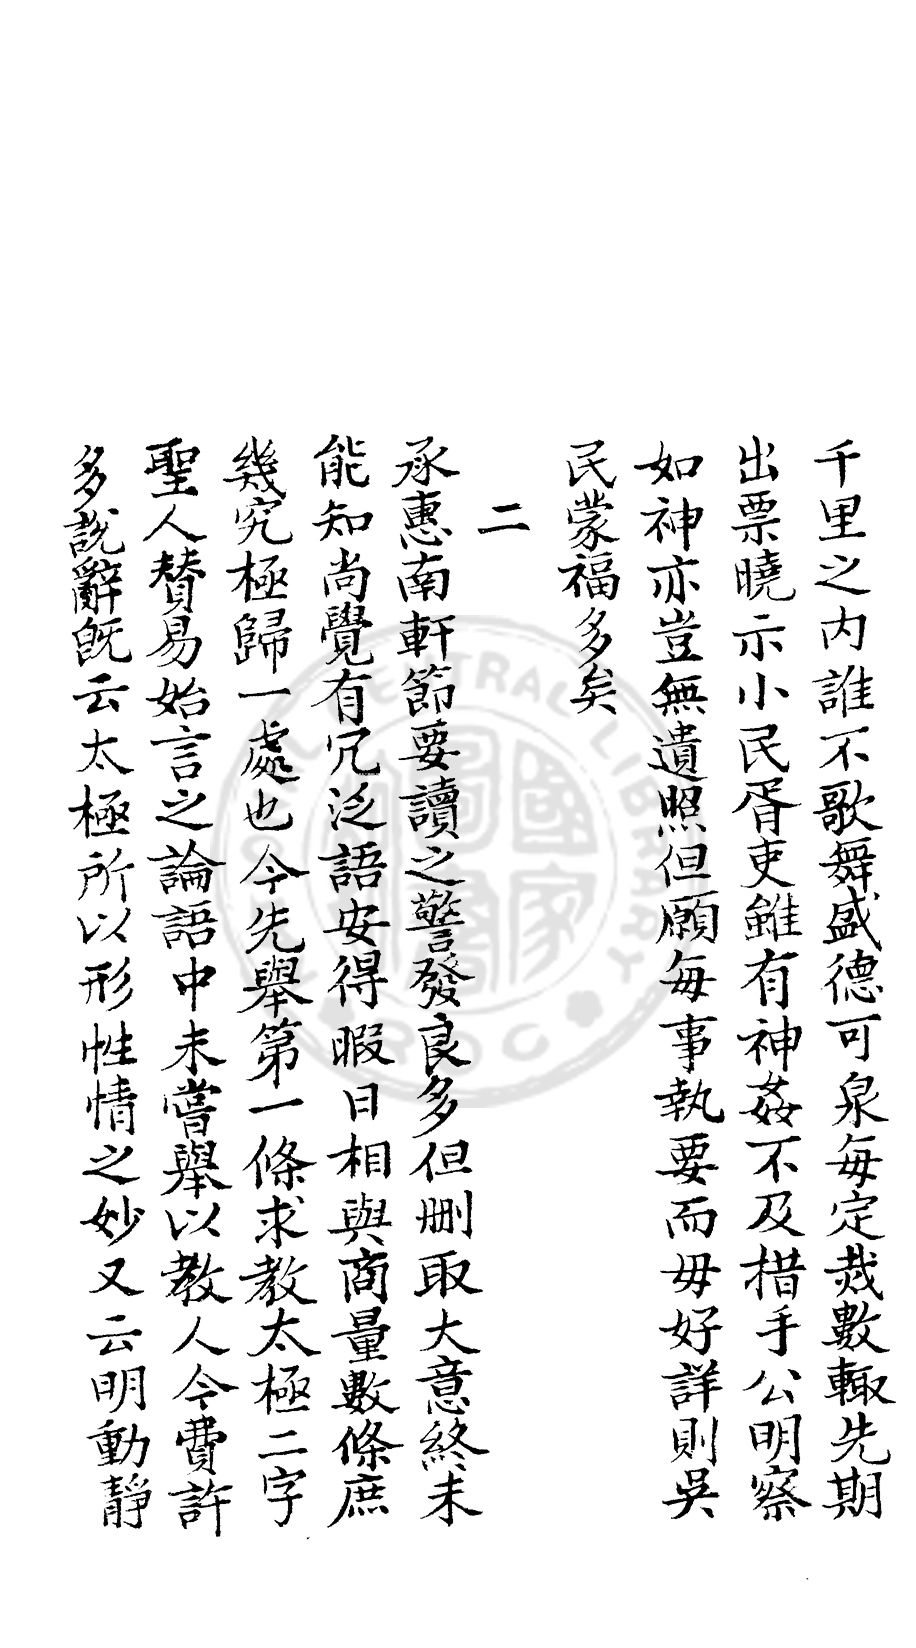 千里之内誰不歌舞盛德可泉每定裁數輙先期
出票曉示小民胥吏雖有神姦不及措手公明察
如神亦豈無遺照但願每事執要而毋好詳則吳
民蒙福多矣
二
承惠南軒節要讀之警發良多但刪取大意終未
能知尚覺有冗泛語安得暇日相與商量數條庶
幾究極歸一處也今先舉第一條求教太極二字
聖人賛易始言之論語中未嘗舉以教人今費許
多說辭旣云太極所以形性情之妙又云明動静